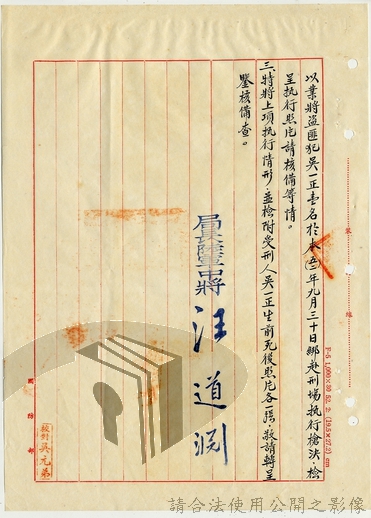 以業將盜匪犯吳一正壹名於本(五二)年九月三十日綁赴刑場執行槍決,檢
呈執行照片請核備等情。
三、特將上項執行情形,並檢附受刑人吳一正生前死後照片各一張,敬請轉呈
鑒核備查。
局長陸軍中將 汪道淵
校對 吳元弟
國防部
裝
線
F-5 1,000×50 52. 2. (19.5×27.2) cm
請合法使用公開之影像